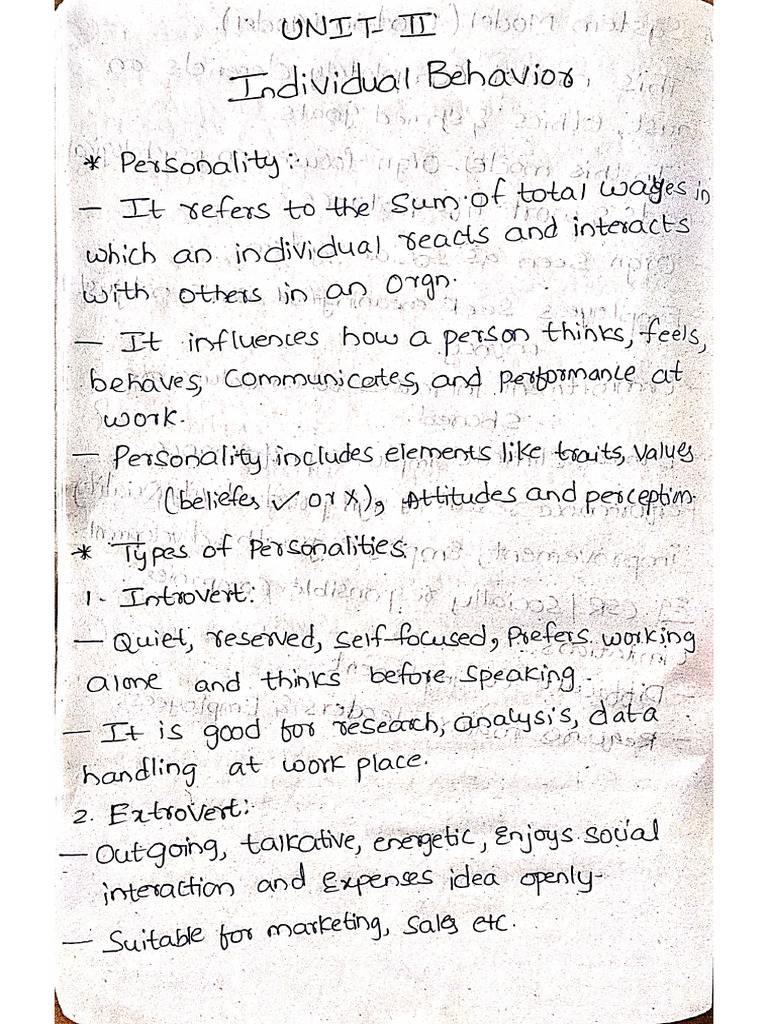 UNIT II
Individual Behavior
* Personality:
— It refers to the sum of total wayes in
which an individual reacts and interacts
with others in an Orgn.
— It influences how a person thinks, feels,
behaves, Communicates, and performance at
work.
— Personality includes elements like traits, values
(beliefes ✓ or X), Attitudes and perception.
* Types of Personalities
1. Introvert:
— Quiet, reserved, self-focused, Prefers working
alone and thinks before speaking.
— It is good for research, analysis, data
handling at work place.
2. Extrovert:
— Outgoing, talkative, energetic, Enjoys social
interaction and Expenses idea openly
— Suitable for marketing, Sales etc.